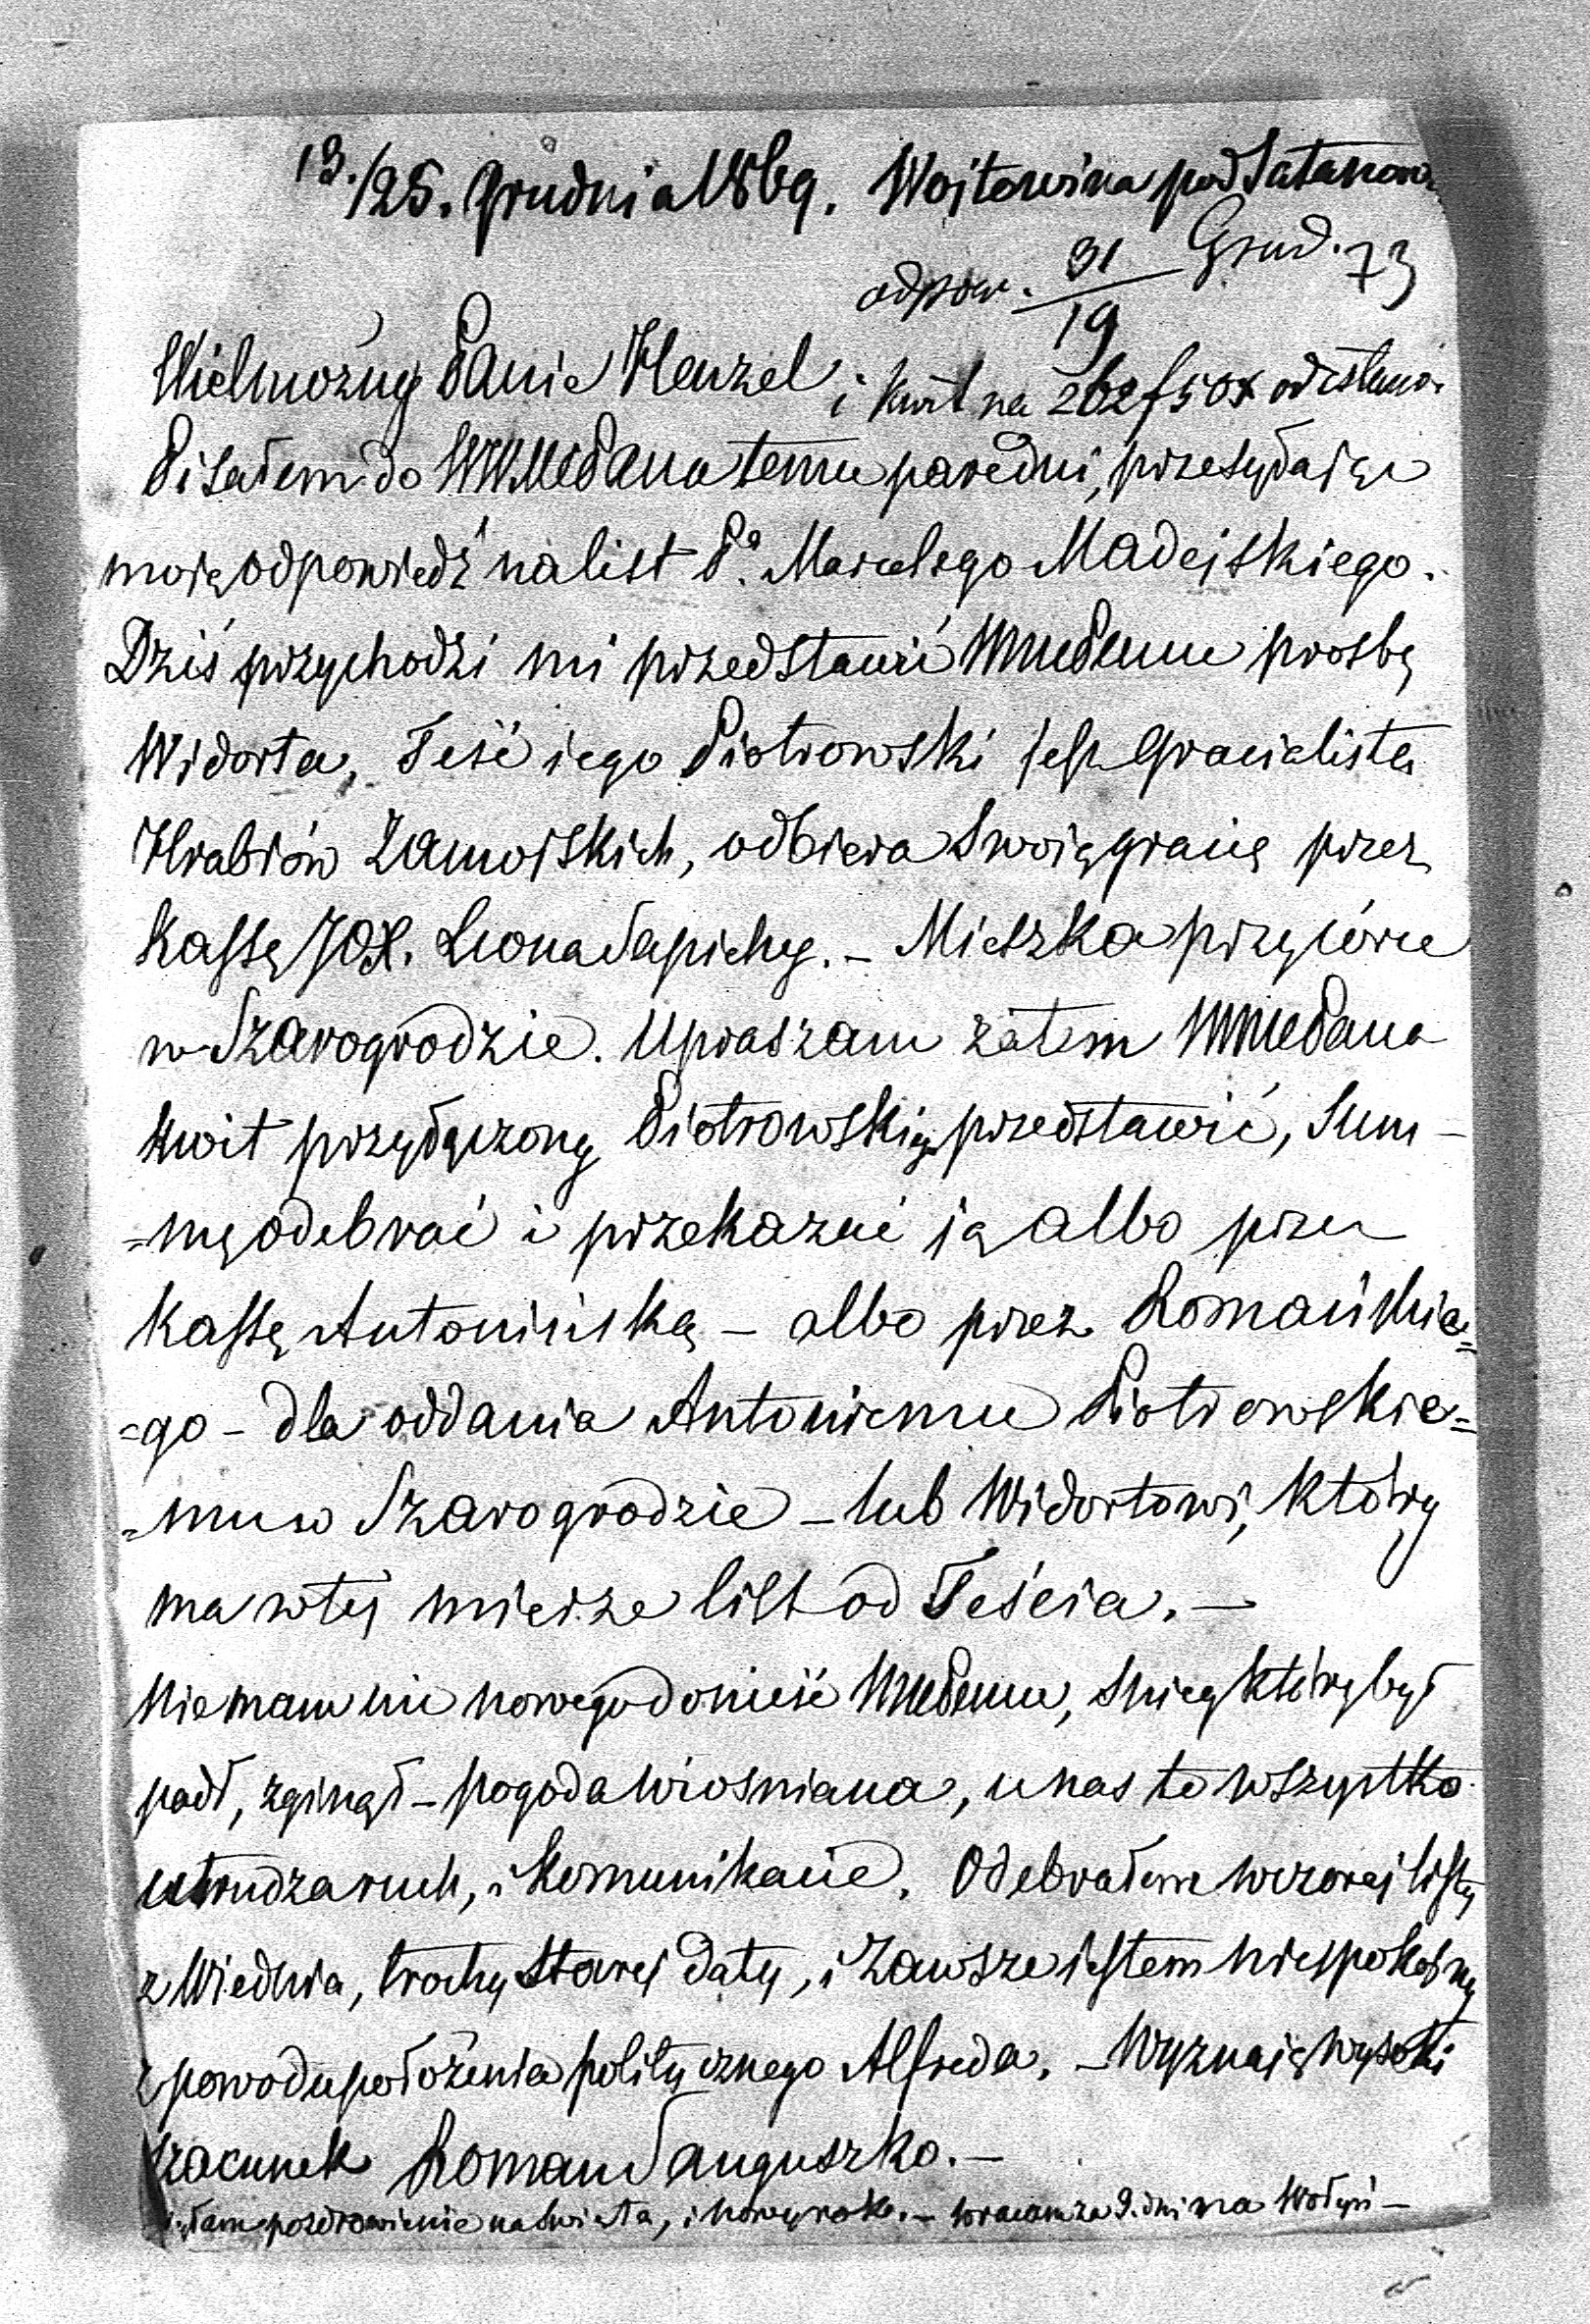 13./25. Grudnia 1869. Wojtowina pod Satanow
odpow. 31/19 Grud. 73
Wielmożny Panie Henzel
i kwit na 262 f 50 x odesłano
Pisałem do WWMePana temu paredni, przesyłaiąc
moię odpowiedź na list Pa. Marcelego Madejskiego.
Dziś przychodzi mi przedstawić WMePanu prosbę
Widorta, Teść iego Piotrowski jest Gracialistą
Hrabiów Zamojskich, odbiera swoię gracię przez
Kassę JOX. Leona Sapiehy. – Mieszka przy córce
w Szarogrodzie. Upraszam zatem WMePana
kwit przyłączony Piotrowskiego przedstawić, Sum-
=mę odebrać i przekazać ją albo przez
Kassę Antonińską – albo przez Romańskie=
=go – dla oddania Antoniemu Piotrowskie=
=mu w Szarogrodzie – lub Widortowi, który
ma w tej mierze list od Teścia. –
Nie mam nic nowego donieść WMePanu, śnieg który był
padł, zginął – pogoda wiosniana, u nas to wszystko
utrudza ruch, i komunikacie. Odebrałem wczoraj listy
z Wiednia, trochy starej daty, i zawsze iestem niespokojny
z powodu położenia politycznego Alfreda. – Wyznaię wysoki
szacunek Roman Sanguszko. –
syłam pozdrowienie na Swięta, i nowy rok. – wracam za 9. dni na Wołyń –